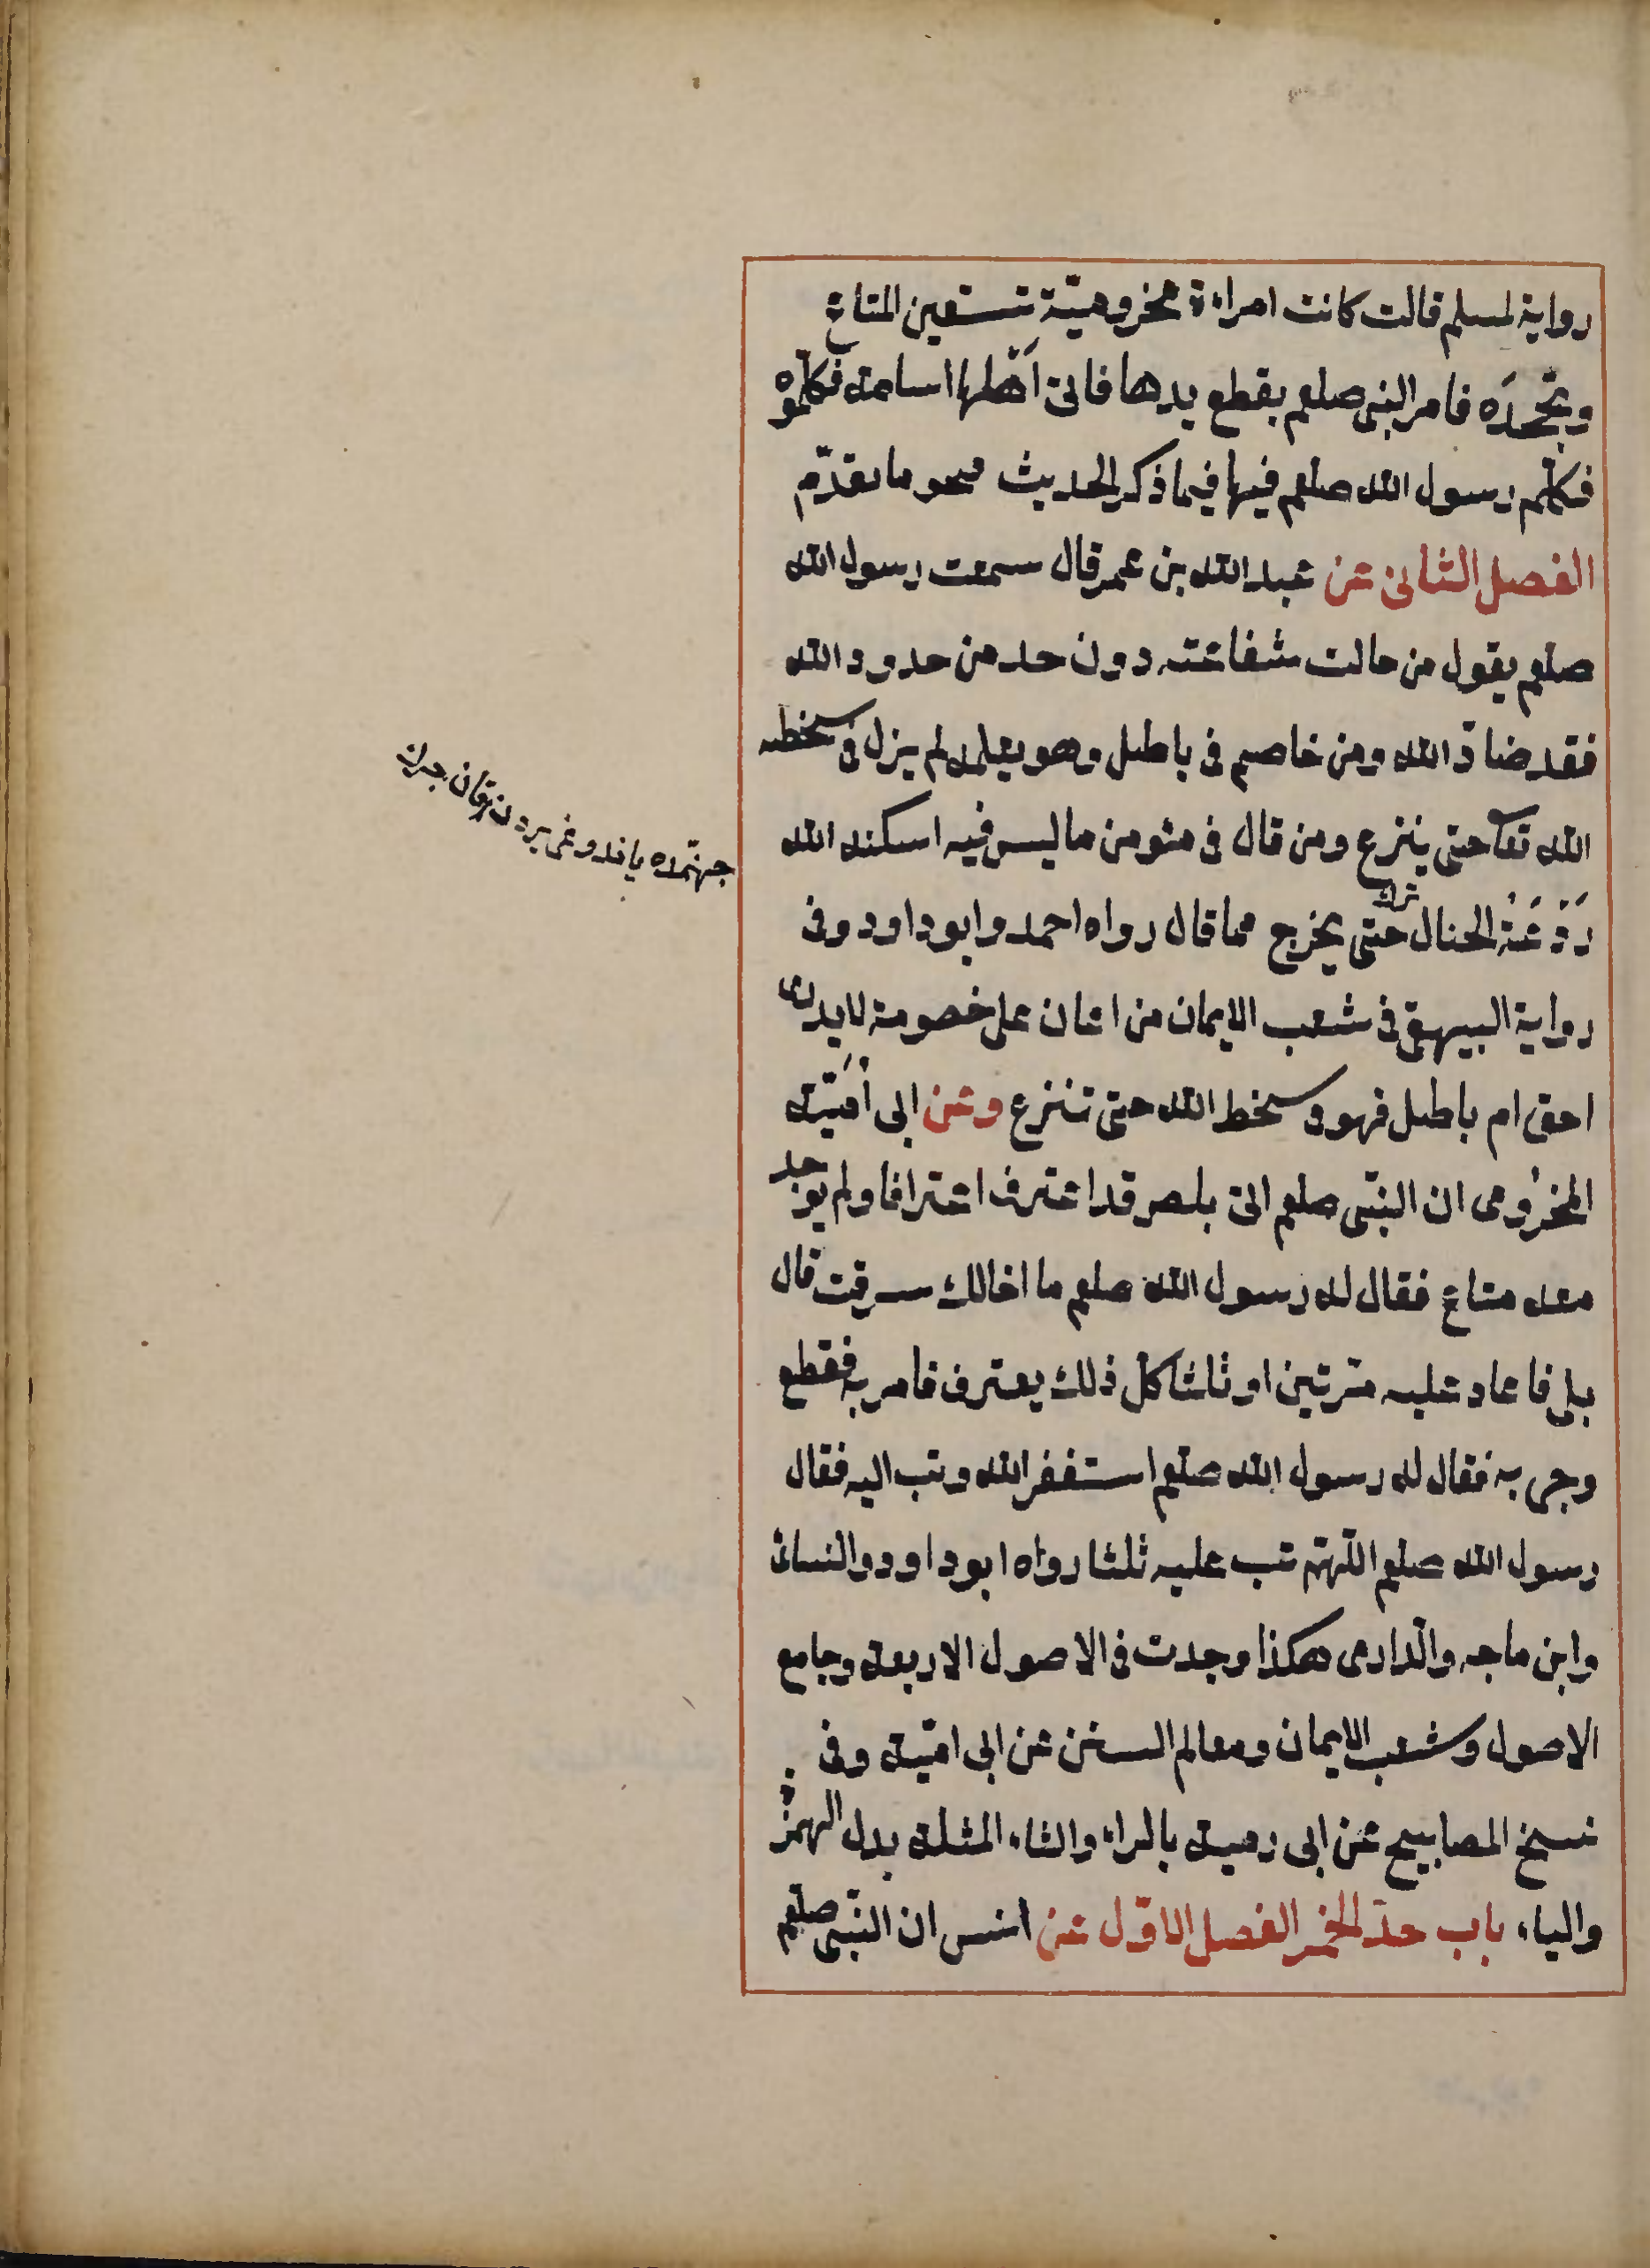 رواية لمسلم قالت كانت امراءة مخزوميّة تستعين المتاع
وتجحدَه فامر النبى صلعم بقطع يدها فاتى اَهْلها اسامة فكلموه
فكلّم رسول الله صلعم فيها فيما ذكر الحديث نحو ما تقدّم
الفصل الثانى عن عبد الله بن عمر قال سمعت رسول الله
صلعم يقول من حالت شفاعته دون حد من حدود الله
فقد ضادّ الله ومن خاصم فى باطل وهو يعلمه لم يزل فى سخطه
الله تعا حتى ينزع ومن قال فى مئومن ما ليس فيه اسكنه الله
رَدْغَةُ الخبال حتى يخرج مما قال رواه احمد وابو داود وفى
ترك
رواية البيهقى فى شعب الايمان من اعان على خصومة لا يدرى
احق ام باطل فهو فى سخط الله حتى تنزع وعن ابى اُمَيّة
المخزُومى ان النبّى صلعم اتى بلص قد اعترف اعترافا ولم يوجد
معه متاع فقال له رسول الله صلعم ما اخالك سرقت قال
بلى فاعاد عليه مرّتين او ثلثا كل ذلك يعترف فامر به فقطع
وجى به فقال له رسول الله صلعم استغفر الله وتب اليه فقال
رسول الله صلعم اللّهمّ تب عليه ثلثا رواه ابو داود والنسائ
وابن ماجه والدّارمى هكذا وجدت فى الاصول الاربعة وجامع
الاصول وشعب الايمان ومعالم السنن عن ابى اميّة وفى
نسخ المصابيح عن ابى رميثة بالراء والثاء المثلثة بدل الهمزة
والياء باب حدّ الخمر الفصل الاوّل عن انس ان النبّى صلعم
جهنّمده يا قدوغى يردن ... قان جرك